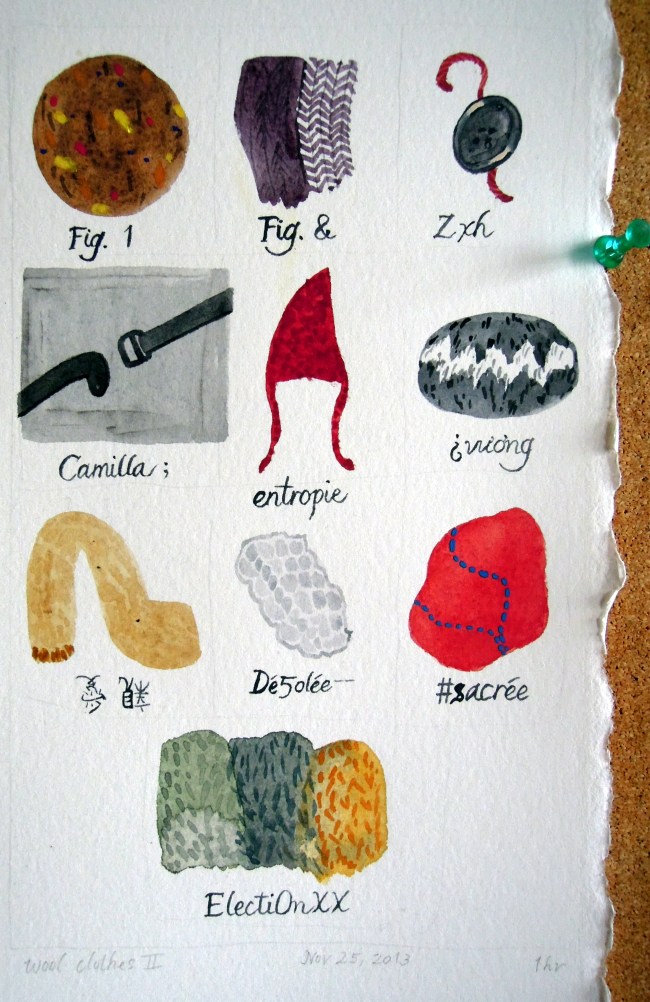 Fig. 1
Fig. &
Zxh
Camilla;
entropie
¿vương
Dé5olée--
#sacrée
ElectiOnXX
wool clothes II
Nov 25, 2013
1hr